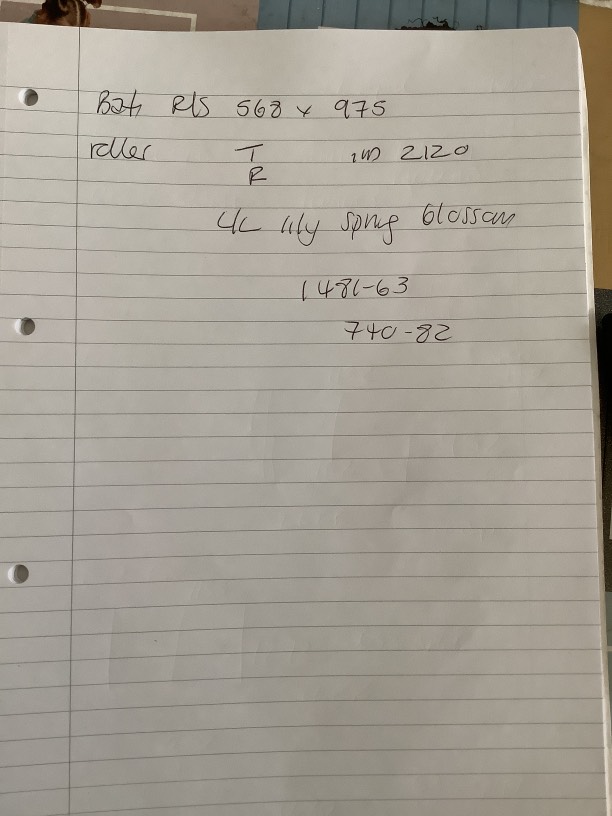 Bath RLS 568 x 975
roller T in 2120
R
L/L lily spring blossom
1481-63
740-82